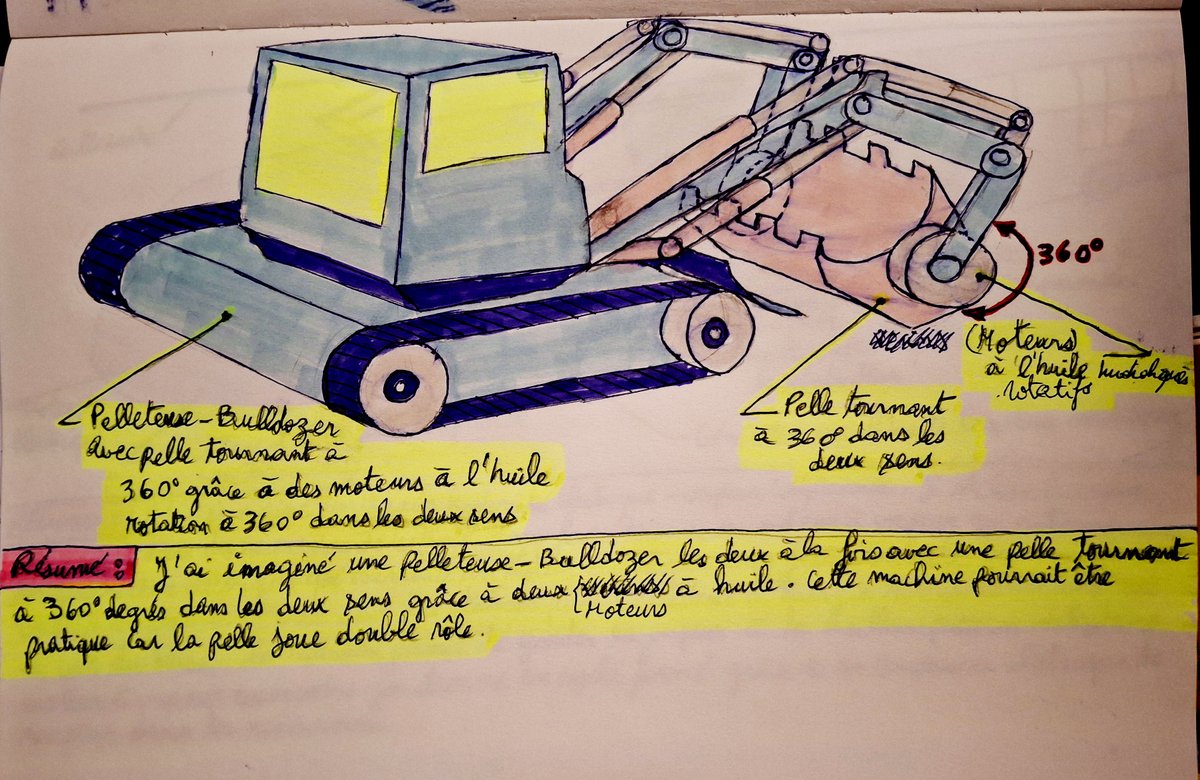 360°
(Moteurs)
à l'huile
rotatifs
Pelleteuse-Bulldozer
avec pelle tournant à
360° grâce à des moteurs à l'huile
rotation à 360° dans les deux sens
Pelle tournant
à 360° dans les
deux sens.
Résumé : J'ai imaginé une Pelleteuse-Bulldozer les deux à la fois avec une pelle tournant
à 360° degrés dans les deux sens grâce à deux Moteurs à huile. Cette machine pourrait être
pratique car la pelle joue double rôle.